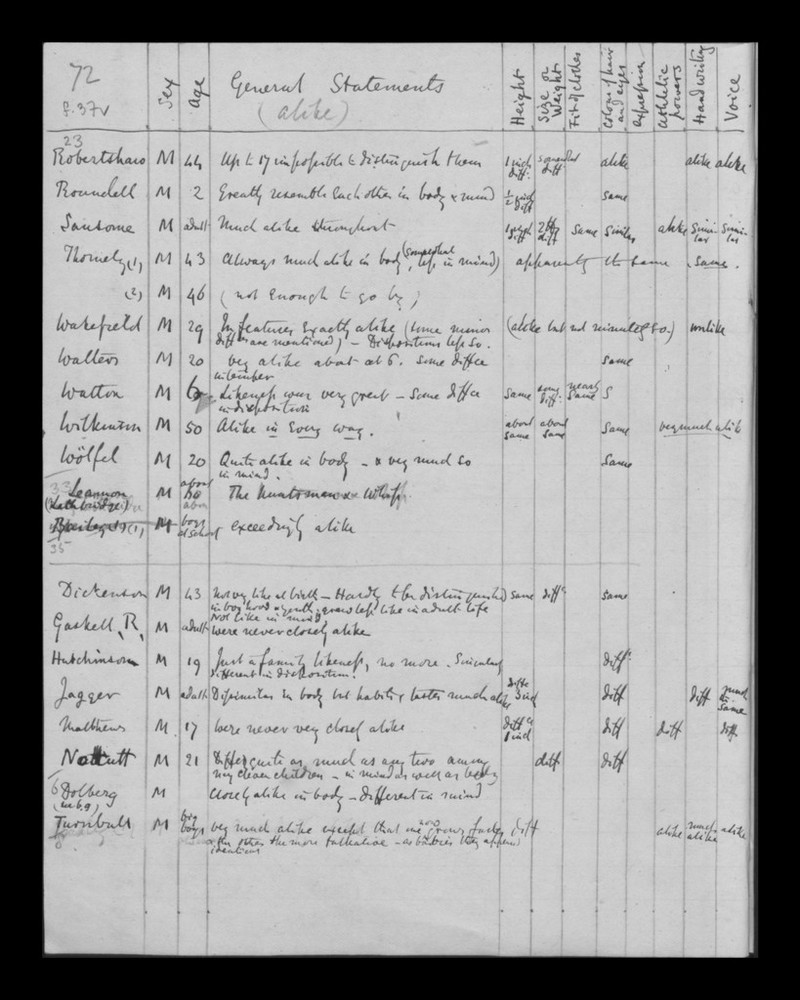 72
f. 37v
Sex
Age
General Statements
(alike)
Height
Size or Weight
Fit of clothes
Colour of hair and eyes
expression
athletic powers
Handwriting
Voice
23
Robertshaw M 44 Up to 17 impossible to distinguish them 1 inch diff. somewhat diff. alike alike alike
Roundell M 2 Greatly resemble each other in body & mind ½ inch diff same
Sansome M adult Much alike throughout 1 inch diff 2 lb diff same similar alike similar similar
Thornely (1) M 43 Always much alike in body (somewhat less in mind) apparently the same same.
(2) M 46 (not enough to go by)
Wakefield M 29 In features exactly alike (some minor (alike but not minutely so.) unlike
diffces are mentioned) – Dispositions less so.
Walters M 20 very alike about aet 6. some diffce same
in temper
Watton M 6 Likeness was very great – some diffce same some diff. nearly same S
in disposition
Wilkinson M 50 Alike in Every way. about same about same same very much alike
Wölfel M 20 Quite alike in body – & very much so same
in mind.
33
Leannon M about 50 The huntsman
(Lethbridge)
(1) M boys at school exceedingly alike
35
Dickenson M 43 not very like at birth – Hardly to be distinguished same diffce same
in boyhood & youth; grew less like in adult life
Not like in mind
Gaskell, R. M adult were never closely alike
Hutchinson M 19 Just a family likeness, no more. Singularly diffce
different in disposition.
Jagger M adult Dissimilar in body but habits & tastes much alike diffce 3 inch diff diff much the same
Matthews M. 17 were never very closely alike diffce 1 inch diff diff diff.
Nottcutt M 21 Differ quite as much as any two among diff diff
my eleven children – in mind as well as body
6 Dolberg M closely alike in body – different in mind
(see b.g)
Turnbull M big boys very much alike except that one now grows faster diff alike much alike alike
the other the more talkative – as babies they appeared
identical